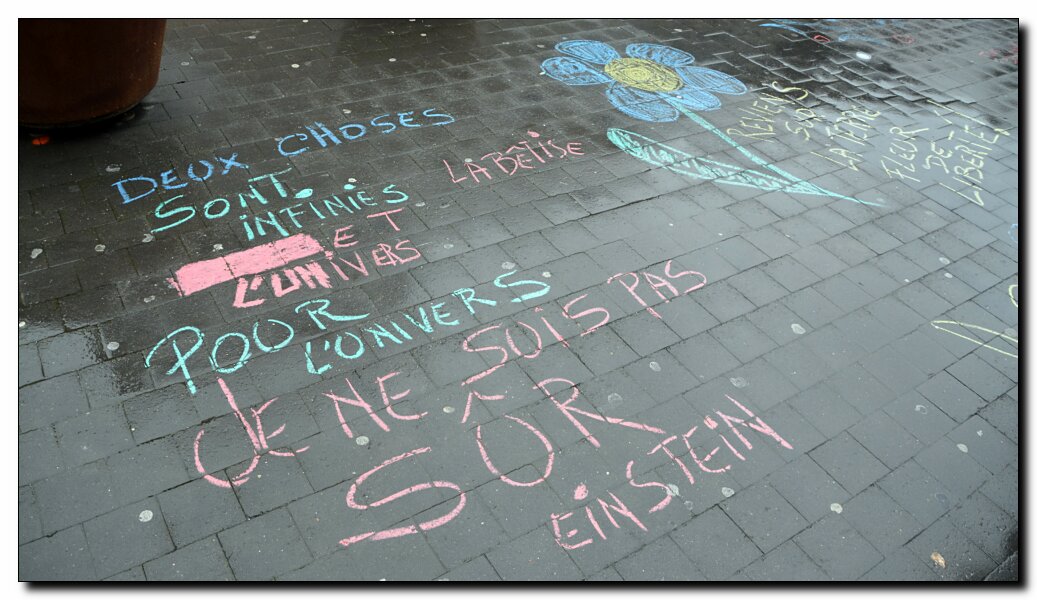 DEUX CHOSES
SONT
INFINIES
LA BÊTISE
ET
L'UNIVERS
POUR
L'UNIVERS
JE NE SUIS PAS
SÛR
EINSTEIN
REVIENS
SUR
LA TERRE
FLEUR
DE
LIBERTÉ!